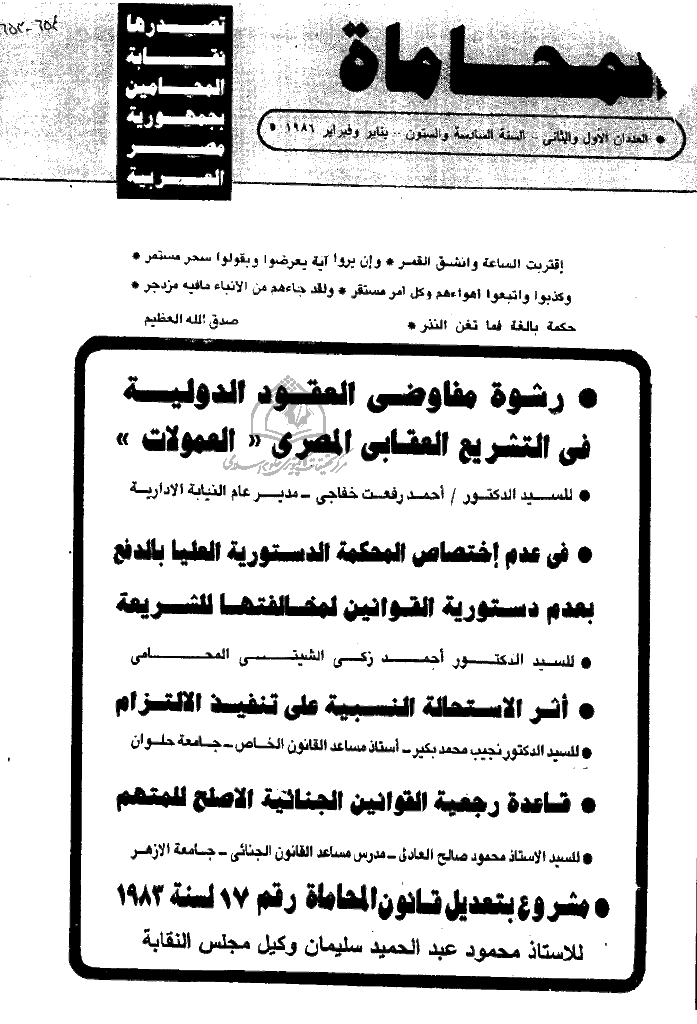 ٦٥٢-٦٥٤
تصدرها
نقابة
المحامين
بجمهورية
مصر
العربية
المحاماة
● العددان الاول والثانى - السنة السادسة والستون - يناير وفبراير ١٩٨٦ ●
إقتربت الساعة وانشق القمر * وإن يروا آية يعرضوا ويقولوا سحر مستمر *
وكذبوا واتبعوا أهواءهم وكل أمر مستقر * ولقد جاءهم من الأنباء مافيه مزدجر *
حكمة بالغة فما تغن النذر * صدق الله العظيم
● رشوة مفاوضى العقود الدولية
فى التشريع العقابى المصرى « العمولات »
● للسيد الدكتور / أحمد رفعت خفاجى - مدير عام النيابة الادارية
● فى عدم إختصاص المحكمة الدستورية العليا بالدفع
بعدم دستورية القوانين لمخالفتها للشريعة
● للسيد الدكتور أحمد زكى الشيتى المحامى
● أثر الاستحالة النسبية على تنفيذ الالتزام
● للسيد الدكتور نجيب محمد بكير - أستاذ مساعد القانون الخاص - جامعة حلوان
● قاعدة رجعية القوانين الجنائية الاصلح للمتهم
● للسيد الاستاذ محمود صالح العادلى - مدرس مساعد القانون الجنائى - جامعة الازهر
● مشروع بتعديل قانون المحاماة رقم ١٧ لسنة ١٩٨٣
للاستاذ محمود عبد الحميد سليمان وكيل مجلس النقابة